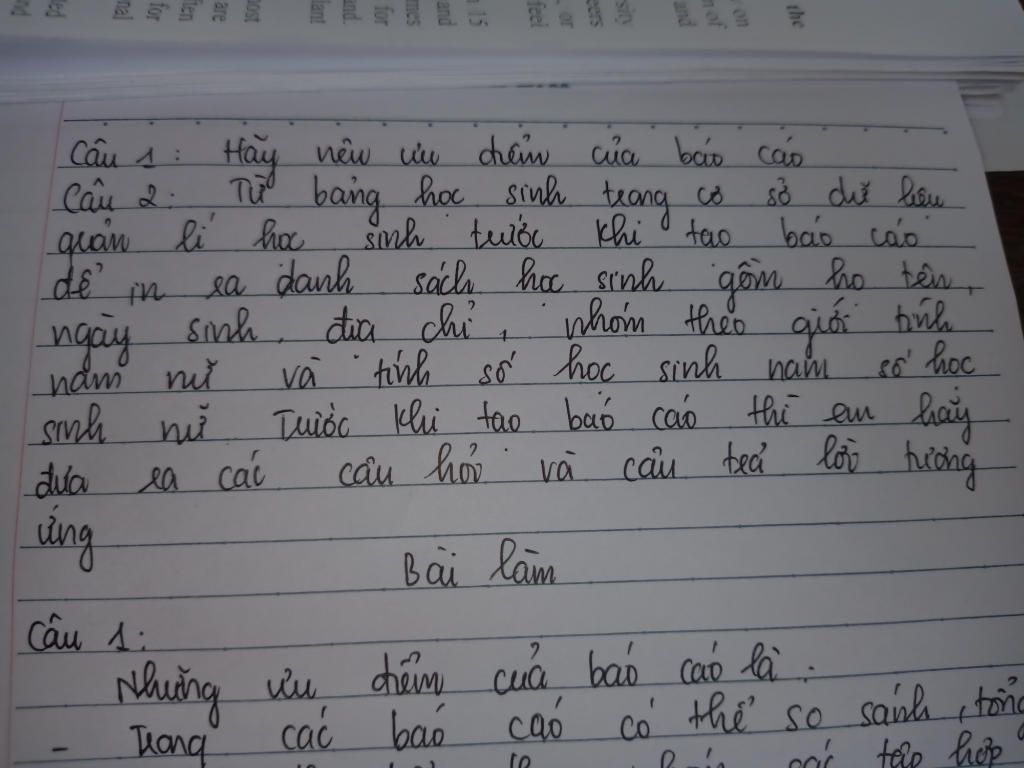 the
y on
m of
and
sity
eers
, or
feel
n 15
and
mes
for
and
lant
ost
are
ften
for
nal
ted
nd
Câu 1: Hãy nêu ưu điểm của báo cáo
Câu 2: Từ bảng học sinh trong cơ sở dữ liệu
quản lí học sinh trước khi tạo báo cáo
để in ra danh sách học sinh gồm họ tên,
ngày sinh, địa chỉ, nhóm theo giới tính
nam nữ và tính số học sinh nam số học
sinh nữ Trước khi tạo báo cáo thì em hãy
đưa ra các câu hỏi và câu trả lời tương
ứng
Bài làm
Câu 1:
Những ưu điểm của báo cáo là:
- Trong các báo cáo có thể so sánh, tổng
các tập hợp